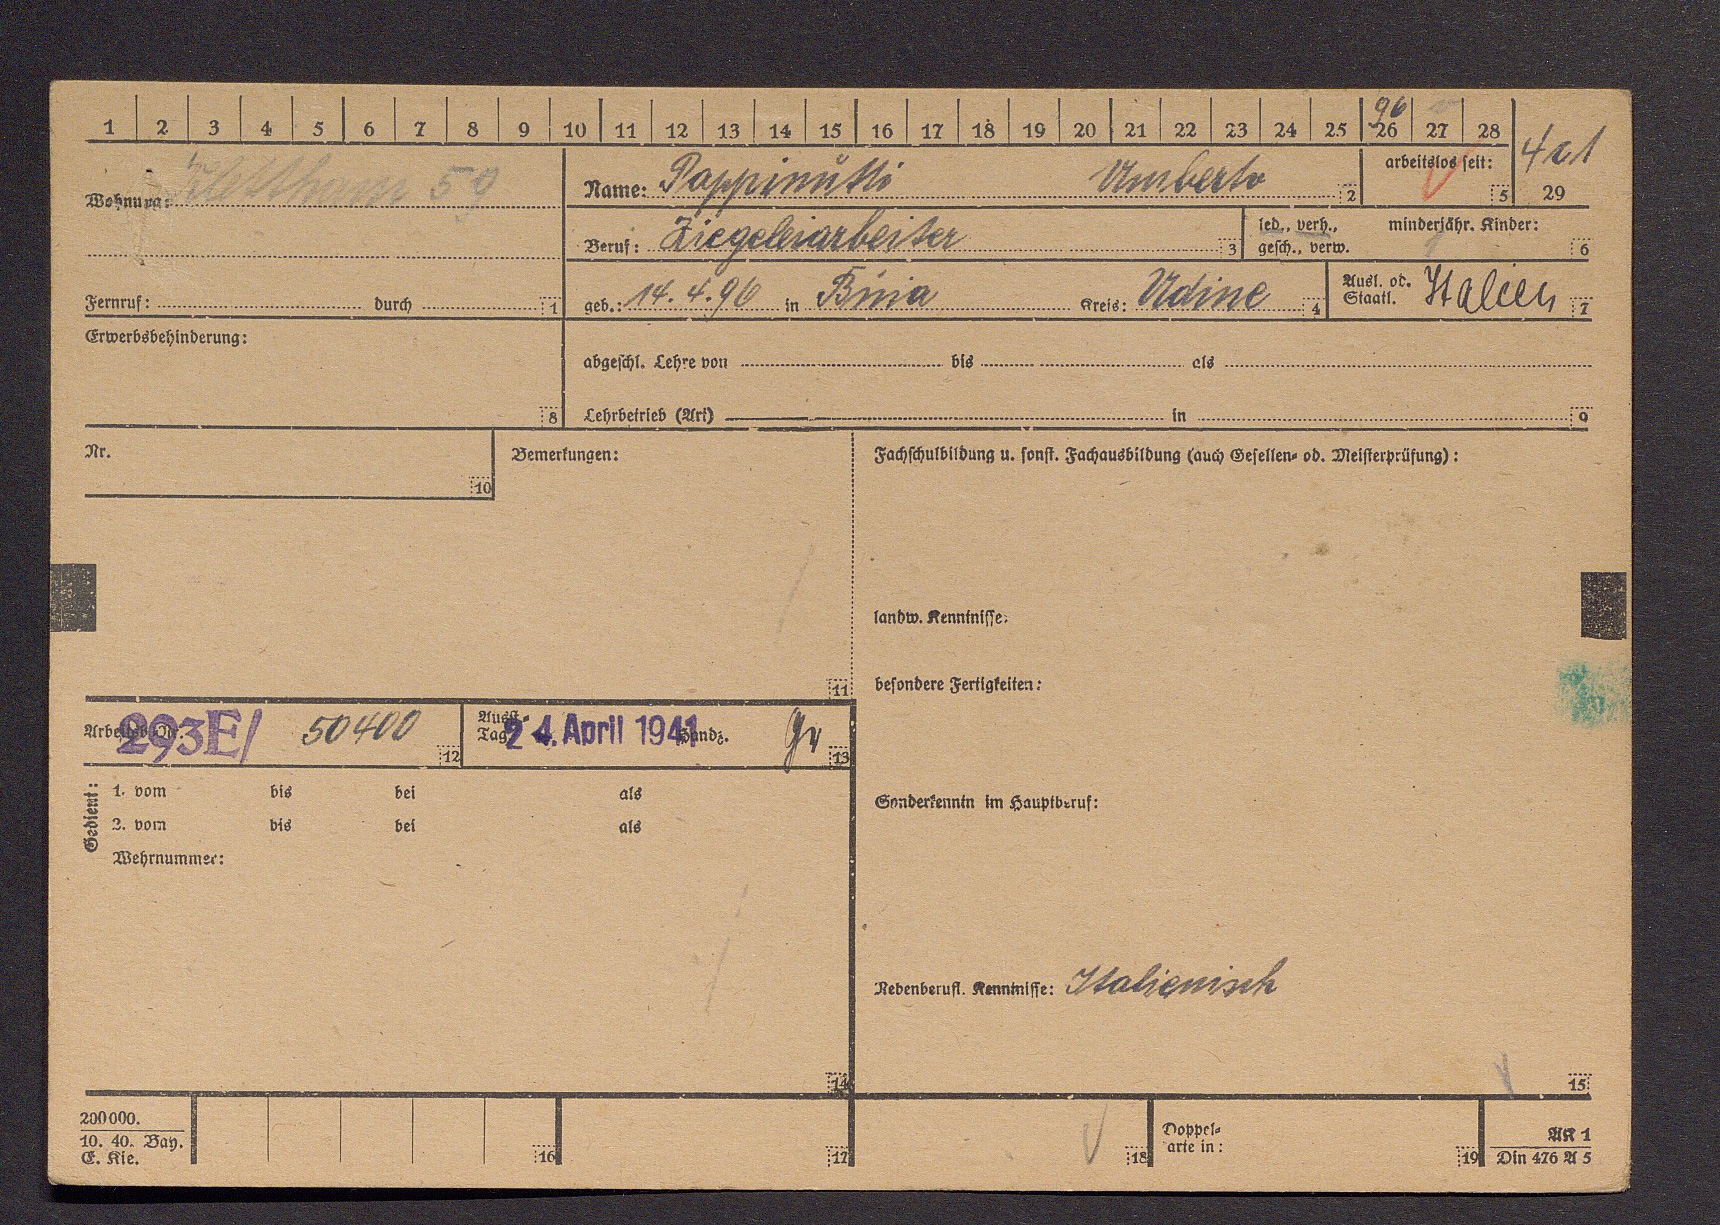 1 2 3 4 5 6 7 8 9 10 11 12 13 14 15 16 17 18 19 20 21 22 23 24 25 26 27 28
96
4a1
29
Wohnung: 59
Name: Pappinutti Umberto 2
arbeitslos seit: 5
Beruf: Ziegeleiarbeiter 3
led., verh., gesch., verw.
minderjähr. Kinder: 6
Fernruf: durch 1
geb.: 14.4.96 in Buia Kreis: Udine 4
Ausl. od. Staatl. Italien 7
Erwerbsbehinderung:
8
abgeschl. Lehre von bis als
Lehrbetrieb (Art) in 9
Nr.
10
Bemerkungen:
11
Fachschulbildung u. sonst. Fachausbildung (auch Gesellen- od. Meisterprüfung):
landw. Kenntnisse:
besondere Fertigkeiten:
Arbeitsb. Nr. 293E/ 50400 12
Ausst.-Tag 24. April 1941 Handz. Gr 13
Gedient:
1. vom bis bei als
2. vom bis bei als
Wehrnummer:
14
Sonderkenntn im Hauptberuf:
Nebenberufl. Kenntnisse: Italienisch
15
200000.
10. 40. Bay.
E. Kie.
16
17
18
Doppel-
arte in:
19
AK 1
Din 476 A 5